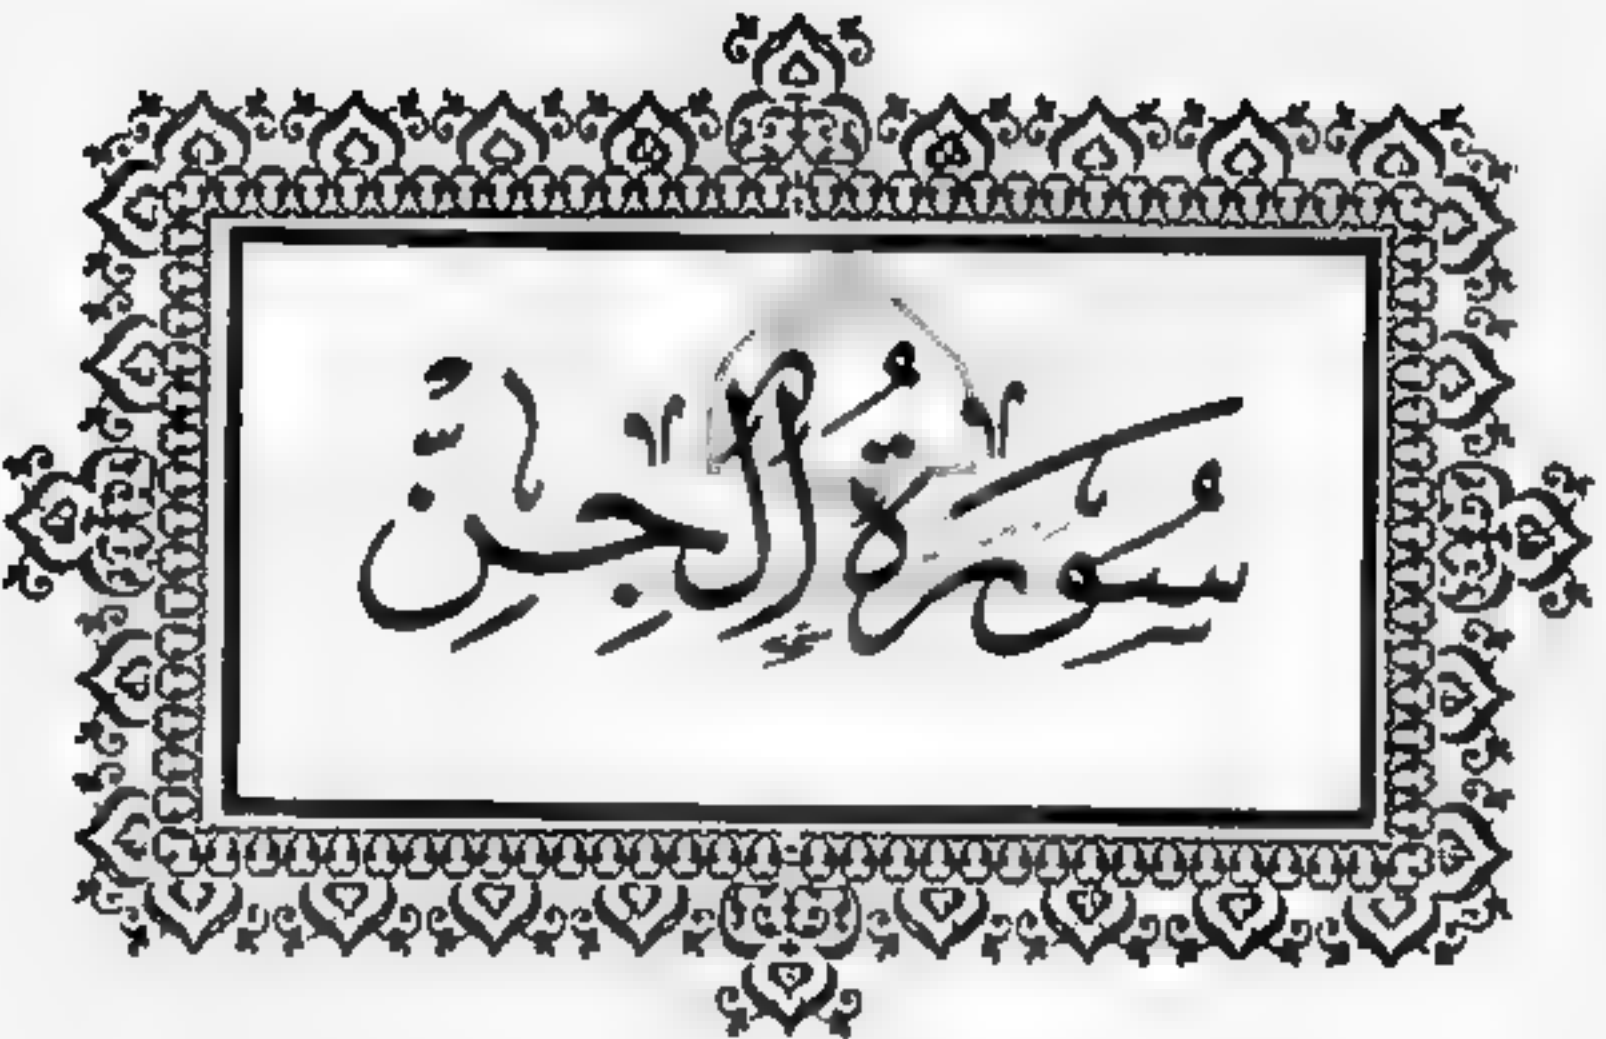 سُورَةُ الْجِنِّ